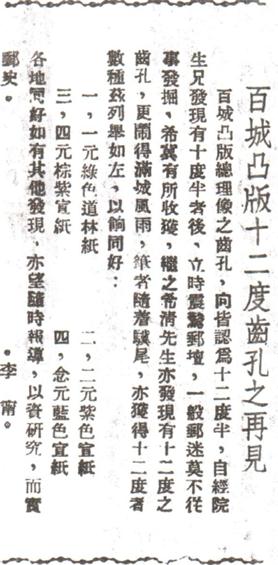 百城凸版十二度齒孔之再見
百城凸版總理像之齒孔，向皆認爲十二度半，自經院
生兄發現有十度半者後，立時震驚郵壇，一般郵迷莫不從
事發掘，希冀有所收獲，繼之希清先生亦發現有十二度之
齒孔，更鬧得滿城風雨，筆者隨着驥尾，亦獲得十二度者
數種茲列舉如左，以餉同好：
一，一元綠色道林紙　　二，二元紫色宣紙
三，四元棕紫宣紙　　四，念元藍色宣紙
各地同好如有其他發現，亦望隨時報導，以資研究，而實
郵史。　　・李甯。